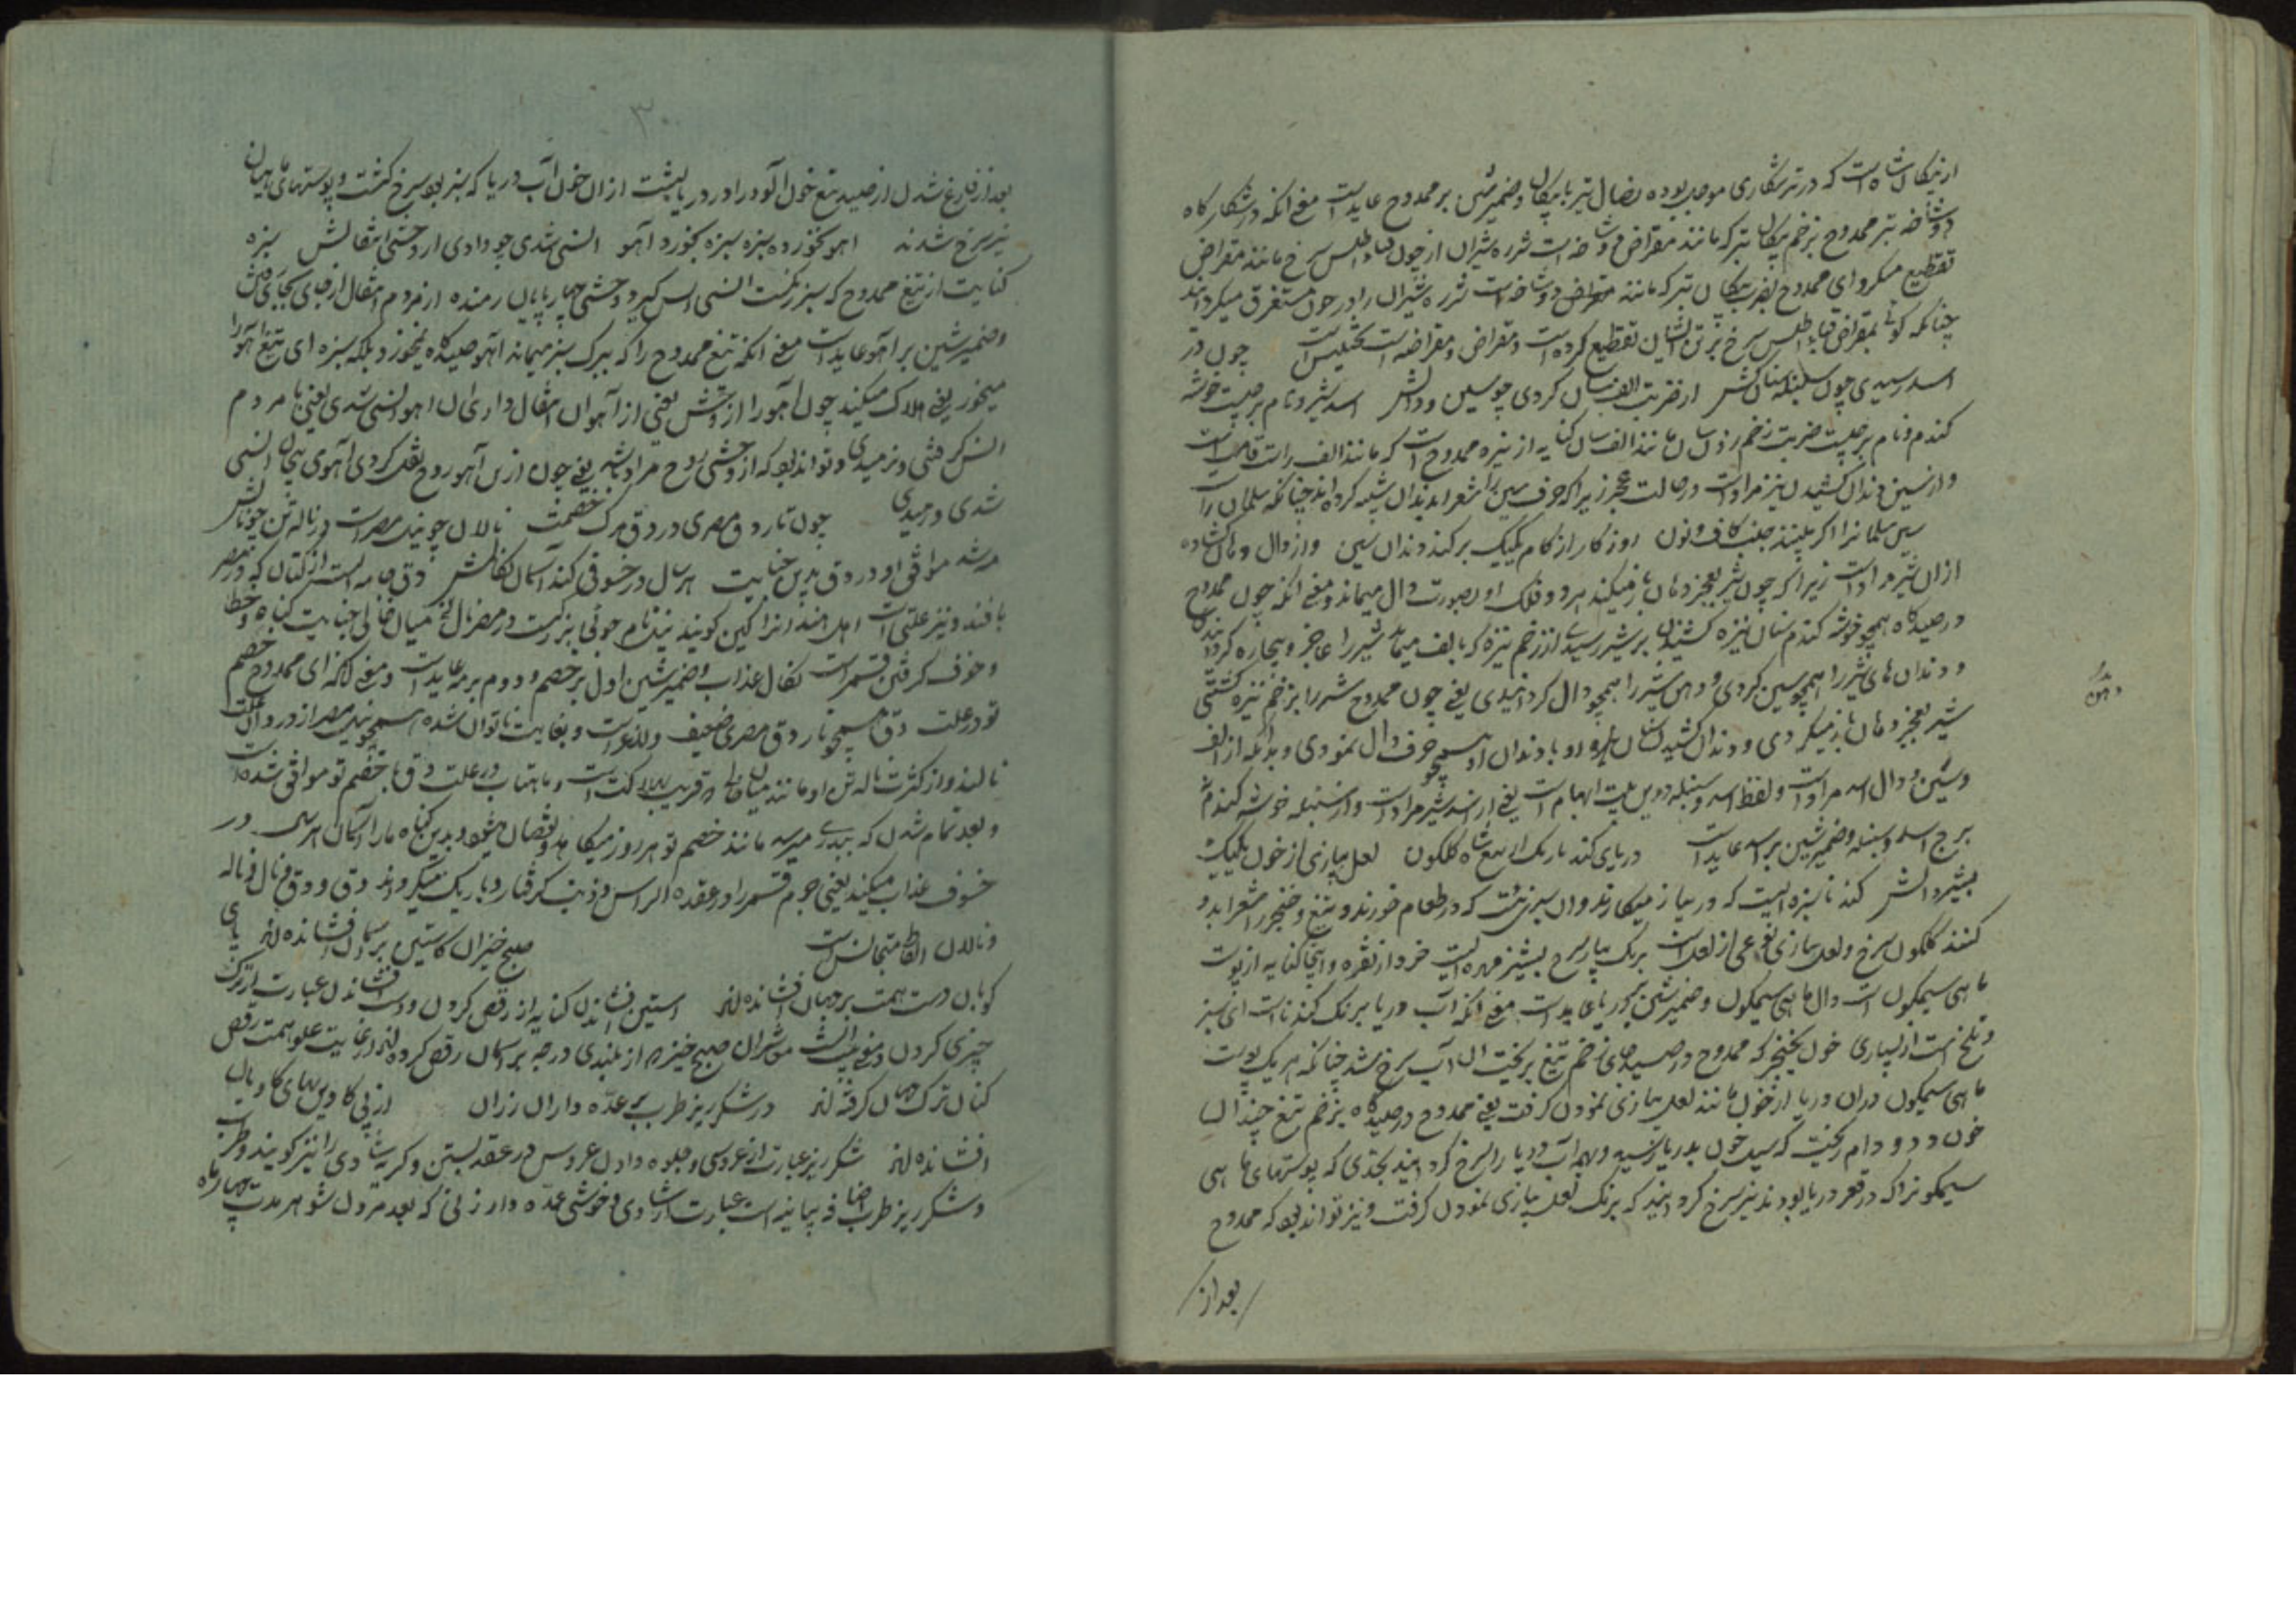 ازپیکان شاه است که در تیر شکاری موجب بوده نصال تیر با پیکان و ضمیر شین بر ممدوح عایدست معنی انکه در شکار کاه
دو شاخه تیر ممدوح بزخم پیکان تیر که مانند مقراض دو شاخه است شرزه شیران از خون قباء اطلس سرخ مانند مقراض
تقطیع میکرد ای ممدوح بضرب پیکان تیر که مانند مقراض دو شاخه است شرزه شیران را در خون مستغرق میکردانید
چنانکه کوئی بمقراض قباء اطلس سرخ بر تن ایشان تقطیع کرده است و مقراض و مقراضه است تجنیس است چون در
اسد رسیدی چون سنبله سنان کش از ضربت الف سان کردی چو سین و دالش اسد شیر و نام برجیست خوشه
کندم و نام برجیست ضربت زخم زدن سان مانند الف سان کنایه از نیزه ممدوح است که مانند الف راست قامت است
و از سین دندان کشیدن نیز مراد است در حالت عجز زیرا که حرف سین را شعرا بدندان شبیه کرده اند چنانکه سلمان راست
سین سلمانرا اکر بیند جفت کاف و نون روزکار از کام یکیک بر کند دندان سین و از دال دهان کشاده
ازان شیر مراد است زیرا که چون شیر بعجز دهان باز میکند هر دو فک او بصورت دال میماند و معنی انکه چون ممدوح
در صیدکاه همچو خوشه کندم سنان نیزه کشیده بر شیر رسیدی از زخم نیزه که بالف میماند شیر را عاجز و بیچاره کردانیدی
و دندان های شیر را همچو سین کردی و دهن شیر را همچو دال کردانیدی یعنی چون ممدوح شیر را بزخم نیزه کشتی
شیر بعجز دهان باز میکردی و دندان کشیده دهان او با دندان او همچو حرف دال نمودی و بدانکه از الف
و سین و دال اسد مراد است و لفظ اسد و سنبله درین بیت ایهام است یعنی از اسد شیر مراد است و از سنبله خوشه کندم
برج اسد و سنبله و ضمیر شین بر اسد عاید است دریای کندنا رنک از تیغ شاه کلکون لعل پیازی از خون یکیک
پشیز دانش کندنا سبزه ایست که در پیاز میکارند و ان سبز رنکست که در طعام خورند و تیغ و خنجر را شعرا بدو
کنند کلکون سرخ و لعل پیازی نوعی از لعل است برنک پیاز سرخ پشیز مهره ایست خرد از نقره و اینجا کنایه از پوست
ماهی سیمکون است دال ماهی سیمکون و ضمیر شین بدریا عایدست معنی انکه آب دریا برنک کندناست ای سبز
و تلخ است از بسیاری خون نخچیر که ممدوح در صیدهای زخم تیغ بریخت ان آب سرخ شد چنانکه هر یک پوست
ماهی سیمکون دران دریا از خون مانند لعل پیازی نمودن کرفت یعنی ممدوح در صیدکاه بزخم تیغ چندان
خون دد و دام ریخت که سیل خون بدریا رسید و همه آب دریا را سرخ کردانید بحدی که پوستهای ماهی
سیمکونرا که در قعر دریا بودند نیز سرخ کردانید که برنک لعل پیازی نمودن کرفت و نیز تواند بود که ممدوح
بعد از
دهن
۳۰
بعد از فارغ شدن از صید تیغ خون آلود را در دریا بشست ازان خون آب دریا که سبز بود سرخ کشت و پوستهای ماهیان
نیز سرخ شدند اهو نخورده سبزه سبزه بخورد آهو انسی شدی چو دادی از وحشی انتقالش سبزه
کنایت از تیغ ممدوح که سبز رنکست انسی انس کیرد وحشی چهار پایان رمنده از مردم انتقال از جای بجای
و ضمیر شین بر آهو عایدست معنی انکه تیغ ممدوح را که ببرک سبز میماند اهو صیدکاه نمیخورد بلکه سبزه ای تیغ آهو را
میخورد یعنی هلاک میکند چون آهو را از وحش یعنی از آهوان انتقال داری ان اهو انسی شدی یعنی با مردم
انس کرفتی و نرمیدی و تواند بود که از وحشی روح مراد باشد یعنی چون ازین آهو روح نقل کردی آهوی بیجان انسی
شدی و نرمیدی چون تار دق مصری در دق مرک خصمت نالان چو نیل مصر است در ناله تن چو نالش
مه شد موافق او در دق بدین جنایت هر سال در خسوفی کند آسمان نکالش دق جامه ایست از کتان که در مصر
بافند و نیز علتی است اهل هند انرا کهین کویند نیل نام جوئی بزرکست در مصر نال نی میان خالی جنایت کناه و خطا
و خوف کرفتن قمر است نکال عذاب و ضمیر شین اول بر خصم و دوم بر مه عایدست و معنی انکه ای ممدوح خصم
تو در علت دق همچو تار دق مصری ضعیف و لاغر است و بغایت ناتوان شده است همچو نیل مصر از درد آن علت
نالند و از کثرت ناله تن او مانند نی میان خالی و قریب هلاکت است و ماهتاب در علت دق با خصم تو موافق شده است
و بعد تمام شدن که ببدری میرسد مانند خصم تو هر روز میکاهد و نقصان میشود بدین کناه ماه را آسمان هر سال در
خسوف عذاب میکند یعنی جرم قمر را در عقده الراس و ذنب کرفتار و باریک میکرداند دق و دق و نال و ناله
و نالان الفاظ متجانس است صبح خیزان کاستین بر آسمان افشانده اند پای
کوبان دست همت بر جهان افشانده اند استین افشاندن کنایه از رقص کردن و دست افشاندن عبارت از ترک
چیزی کردن و معنی بیت انست صبح خیزان از بلندی درجه بر آسمان رقص کرده اند و از غایت علو همت رقص
کنان ترک جهان کرفته اند در شکر ریز طرب بر عده داران رزان از پی کاوین بهای کاویان
افشانده اند شکر ریز عبارت از عروسی و جلوه دادن عروس در عقد بستن و کریه شادی را نیز کویند و طرب
و شکر ریز طرب اضافه بیانیه است عبارت از شادی و خوشی عده دار زنی که بعد مردن شوهر مدت چهار ماه